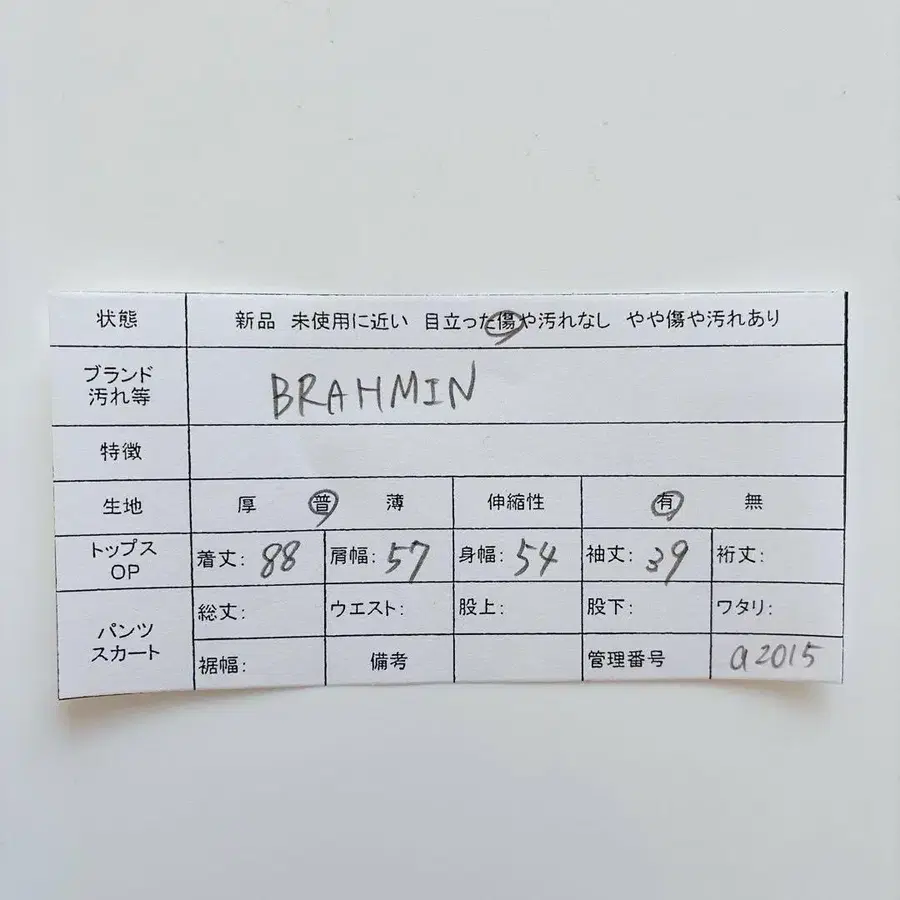 状態 新品 未使用に近い 目立った傷や汚れなし やや傷や汚れあり
ブランド
汚れ等 BRAHMIN
特徴
生地 厚 普 薄 伸縮性 有 無
トップス
OP 着丈: 88 肩幅: 57 身幅: 54 袖丈: 39 裄丈:
パンツ
スカート 総丈: ウエスト: 股上: 股下: ワタリ:
裾幅: 備考 管理番号 a2015